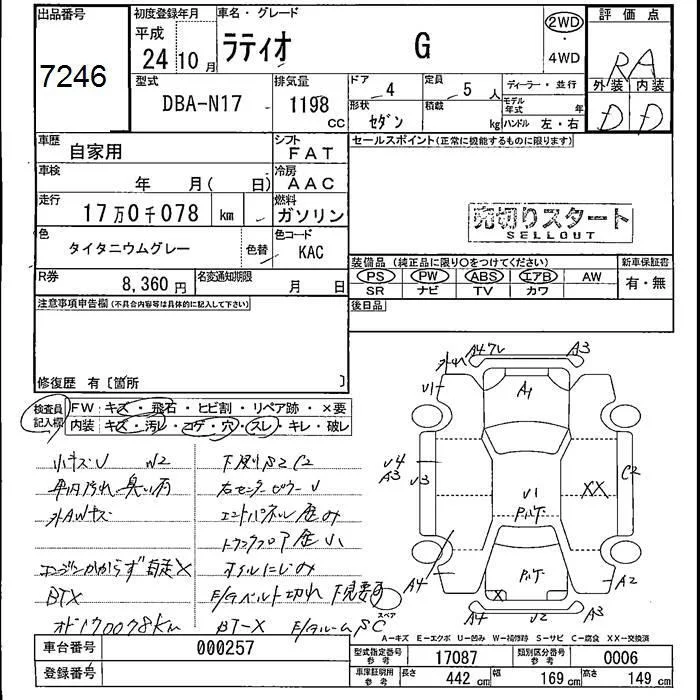 出品番号
7246
初度登録年月
平成
24 10月
車名・グレード
ラティオ G
2WD
・
4WD
評価点
RA
外装 内装
D D
型式
DBA-N17
排気量
1198 CC
ドア
4
定員
5 人
ディーラー・並行
形状
セダン
積載
kg
モデル年式 年
ハンドル 左・右
車歴
自家用
シフト
FAT
セールスポイント(正常に機能するものに限ります)
車検
年 月( 日)
冷房
AAC
走行
17万0千078 km
燃料
ガソリン
売切りスタート
SELLOUT
色
タイタニウムグレー
色替
色コード
KAC
装備品(純正品に限り○をつけてください)
新車保証書
PS PW ABS エアB AW
SR ナビ TV カワ
有・無
R券
8,360 円
名変通知期限
月 日
後日品
注意事項申告欄(不具合内容等は具体的に記入して下さい)
修復歴 有〔箇所 〕
検査員記入欄
FW:キズ・飛石・ヒビ割・リペア跡・×要
内装:キズ・汚レ・コゲ・穴・スレ・キレ・破レ
小キズU W2
下廻りS2 C2
車内汚れ・臭い有
右センターピラーU
外AWキズ
エンドパネル歪み
トランクフロア歪小
エンジンかからず自走X
オイルにじみ
BTX
E/Gベルト切れ 下見要す
オド170078Km
BT-X E/Gルーム SC
A4ワレ
A3
外ハ
U1
A1
U4
A3
U3
C2
XX
U1
P.ハケ
P.ハケ
X
A4
A2
A4
U2
A3
スペア
A-キズ E-エクボ U-凹み W-補修跡 S-サビ C-腐食 XX-交換済
車台番号
000257
登録番号
型式指定番号
参考
17087
類別区分番号
参考
0006
車庫証明用
参考
長さ
442 cm
幅
169 cm
高さ
149 cm